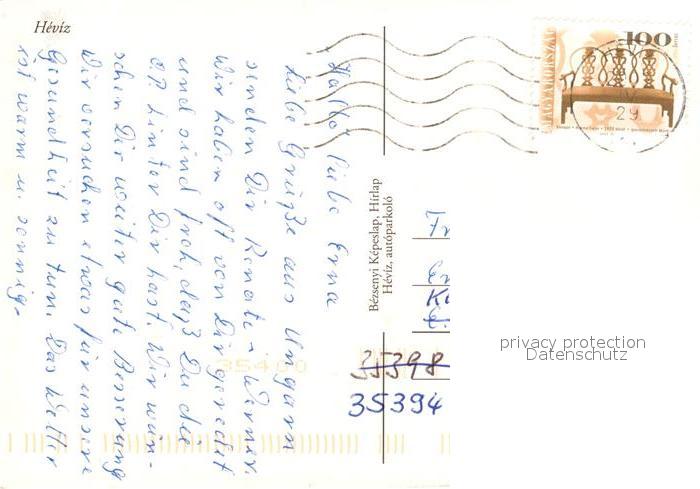 Hévíz
Hallo, liebe Erna
Liebe Grüße aus Ungarn
senden Dir Renate + Werner.
Wir haben oft von Dir geredet
und sind froh, daß Du die
OP hinter Dir hast. Wir wün-
schen Dir weiter gute Besserung
Wir versuchen etwas für unsere
Gesundheit zu tun. Das Wetter
ist warm u. sonnig.
Bézsenyi Képeslap, Hírlap
Hévíz, autóparkoló
MAGYARORSZÁG
100
29
Fr
Er
35400
35398
35394
privacy protection
Datenschutz